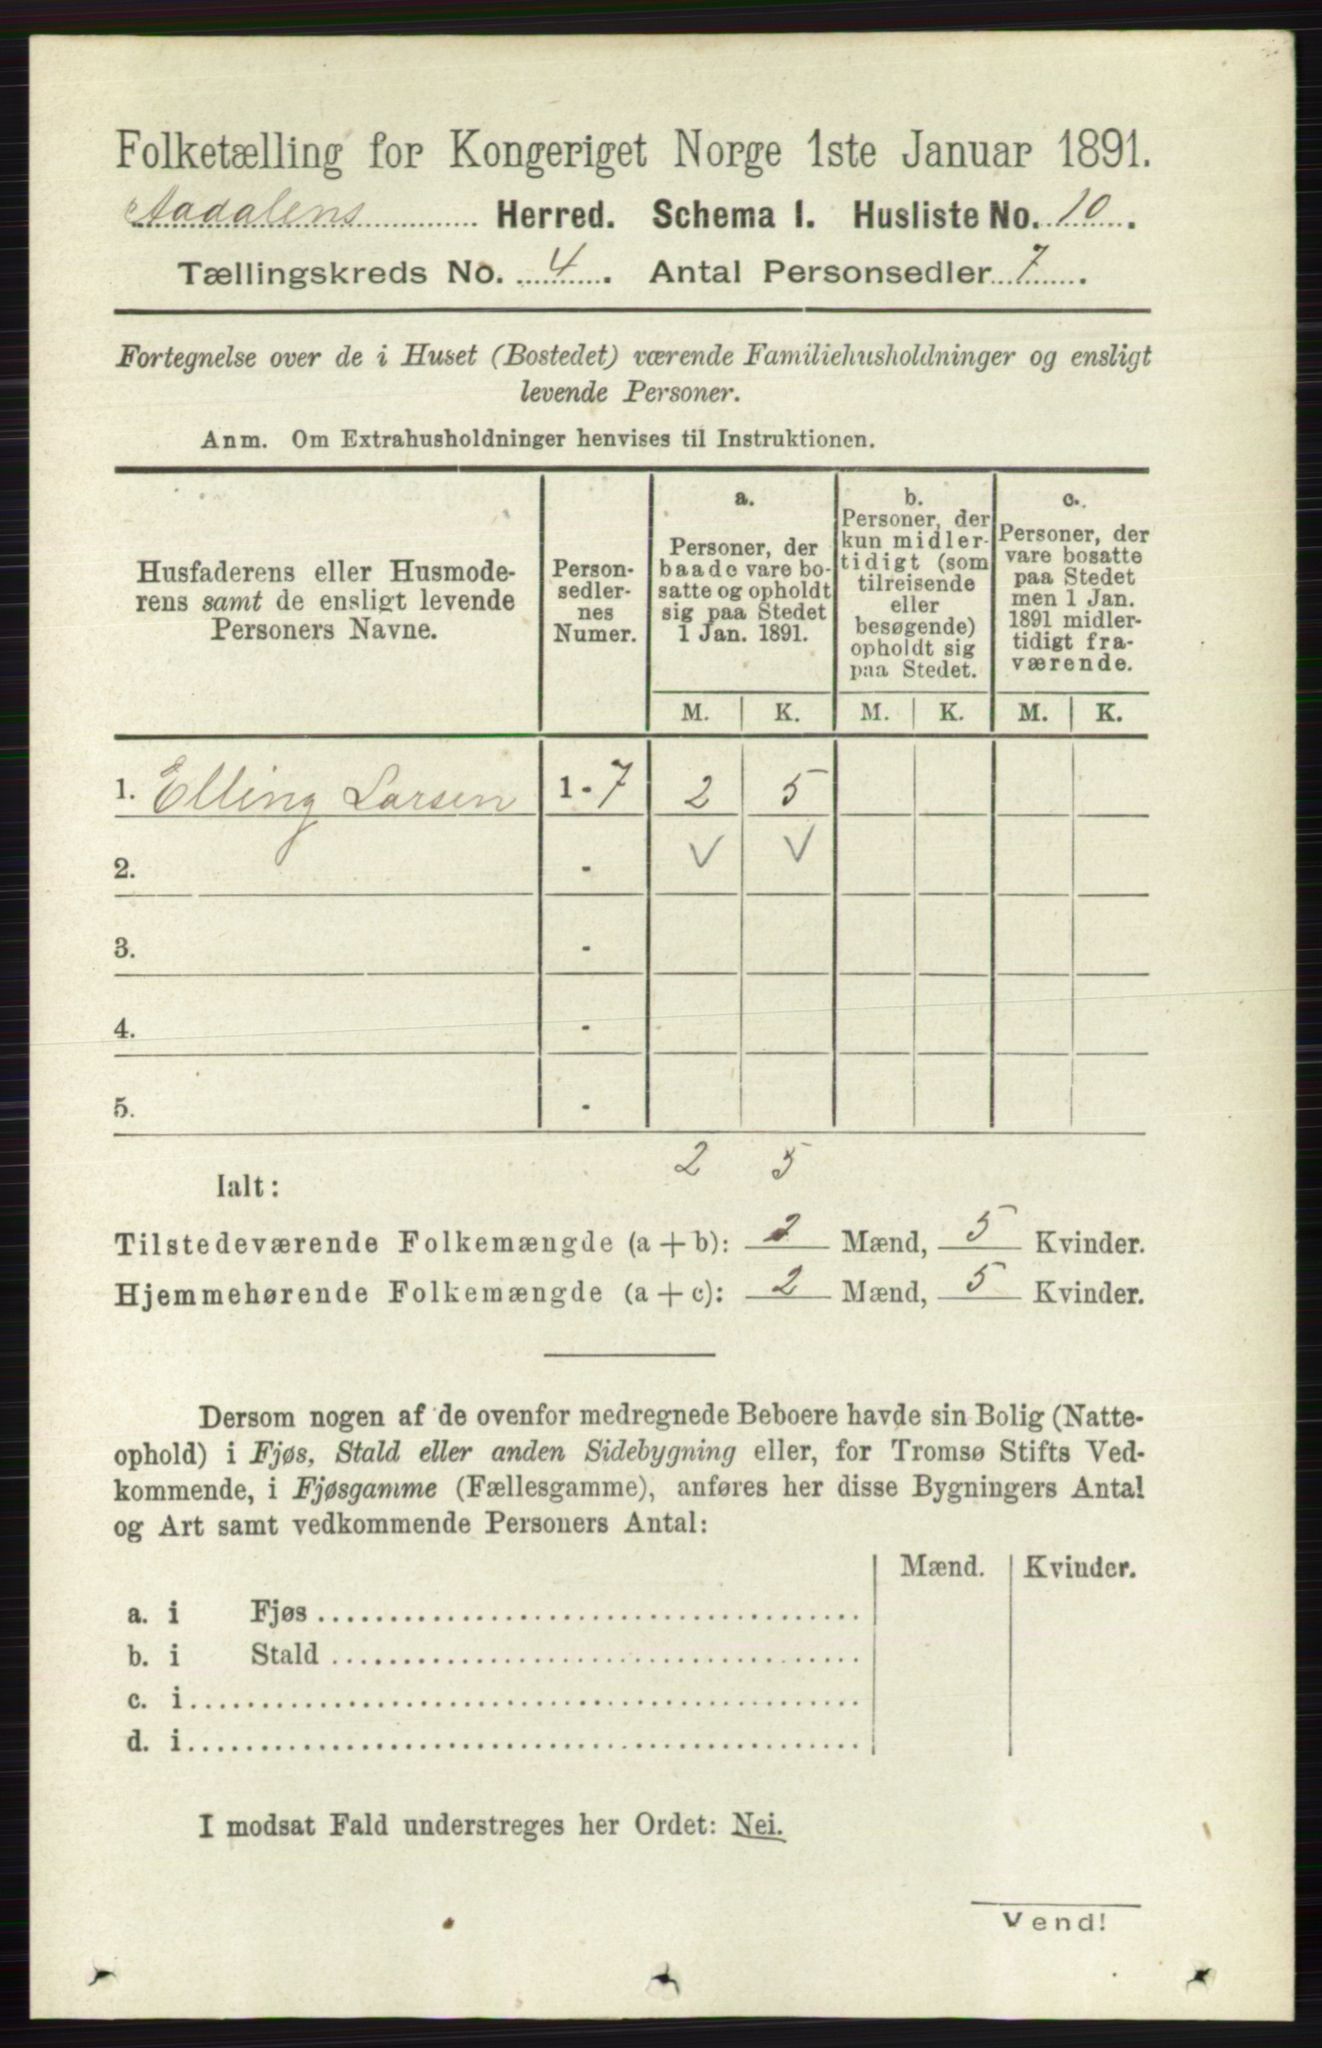 Folketælling for Kongeriget Norge 1ste Januar 1891.
Aadalens Herred. Schema I. Husliste No. 10.
Tællingskreds No. 4. Antal Personsedler 7.
Fortegnelse over de i Huset (Bostedet) værende Familiehusholdninger og ensligt
levende Personer.
Anm. Om Extrahusholdninger henvises til Instruktionen.
Husfaderens eller Husmode-
rens samt de ensligt levende
Personers Navne.
Person-
sedler-
nes
Numer.
a.
Personer, der
baade vare bo-
satte og opholdt
sig paa Stedet
1 Jan. 1891.
b.
Personer, der
kun midler-
tidigt (som
tilreisende
eller
besøgende)
opholdt sig
paa Stedet.
c.
Personer, der
vare bosatte
paa Stedet
men 1 Jan.
1891 midler-
tidigt fra-
værende.
M. K. M. K. M. K.
1. Elling Larsen 1 - 7 2 5
2. - V V
3. -
4. -
5. -
2 5
Ialt:
Tilstedeværende Folkemængde (a + b): 2 Mænd, 5 Kvinder.
Hjemmehørende Folkemængde (a + c): 2 Mænd, 5 Kvinder.
Dersom nogen af de ovenfor medregnede Beboere havde sin Bolig (Natte-
ophold) i Fjøs, Stald eller anden Sidebygning eller, for Tromsø Stifts Ved-
kommende, i Fjøsgamme (Fællesgamme), anføres her disse Bygningers Antal
og Art samt vedkommende Personers Antal:
Mænd. Kvinder.
a. i Fjøs
b. i Stald
c. i
d. i
I modsat Fald understreges her Ordet: Nei.
Vend!